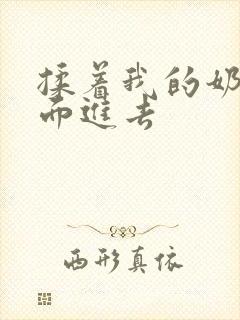 揉着我的奶
而進去
西形真依